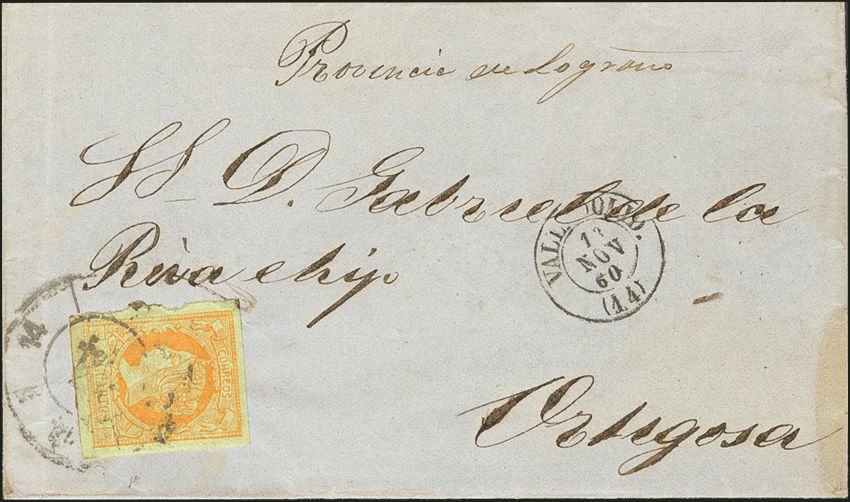 Provincia de Logroño
SS D. Gabriel de la
Riva e hijo
VALLADOLID.
NOV
60
(14)
14
CORREOS
Ortigosa